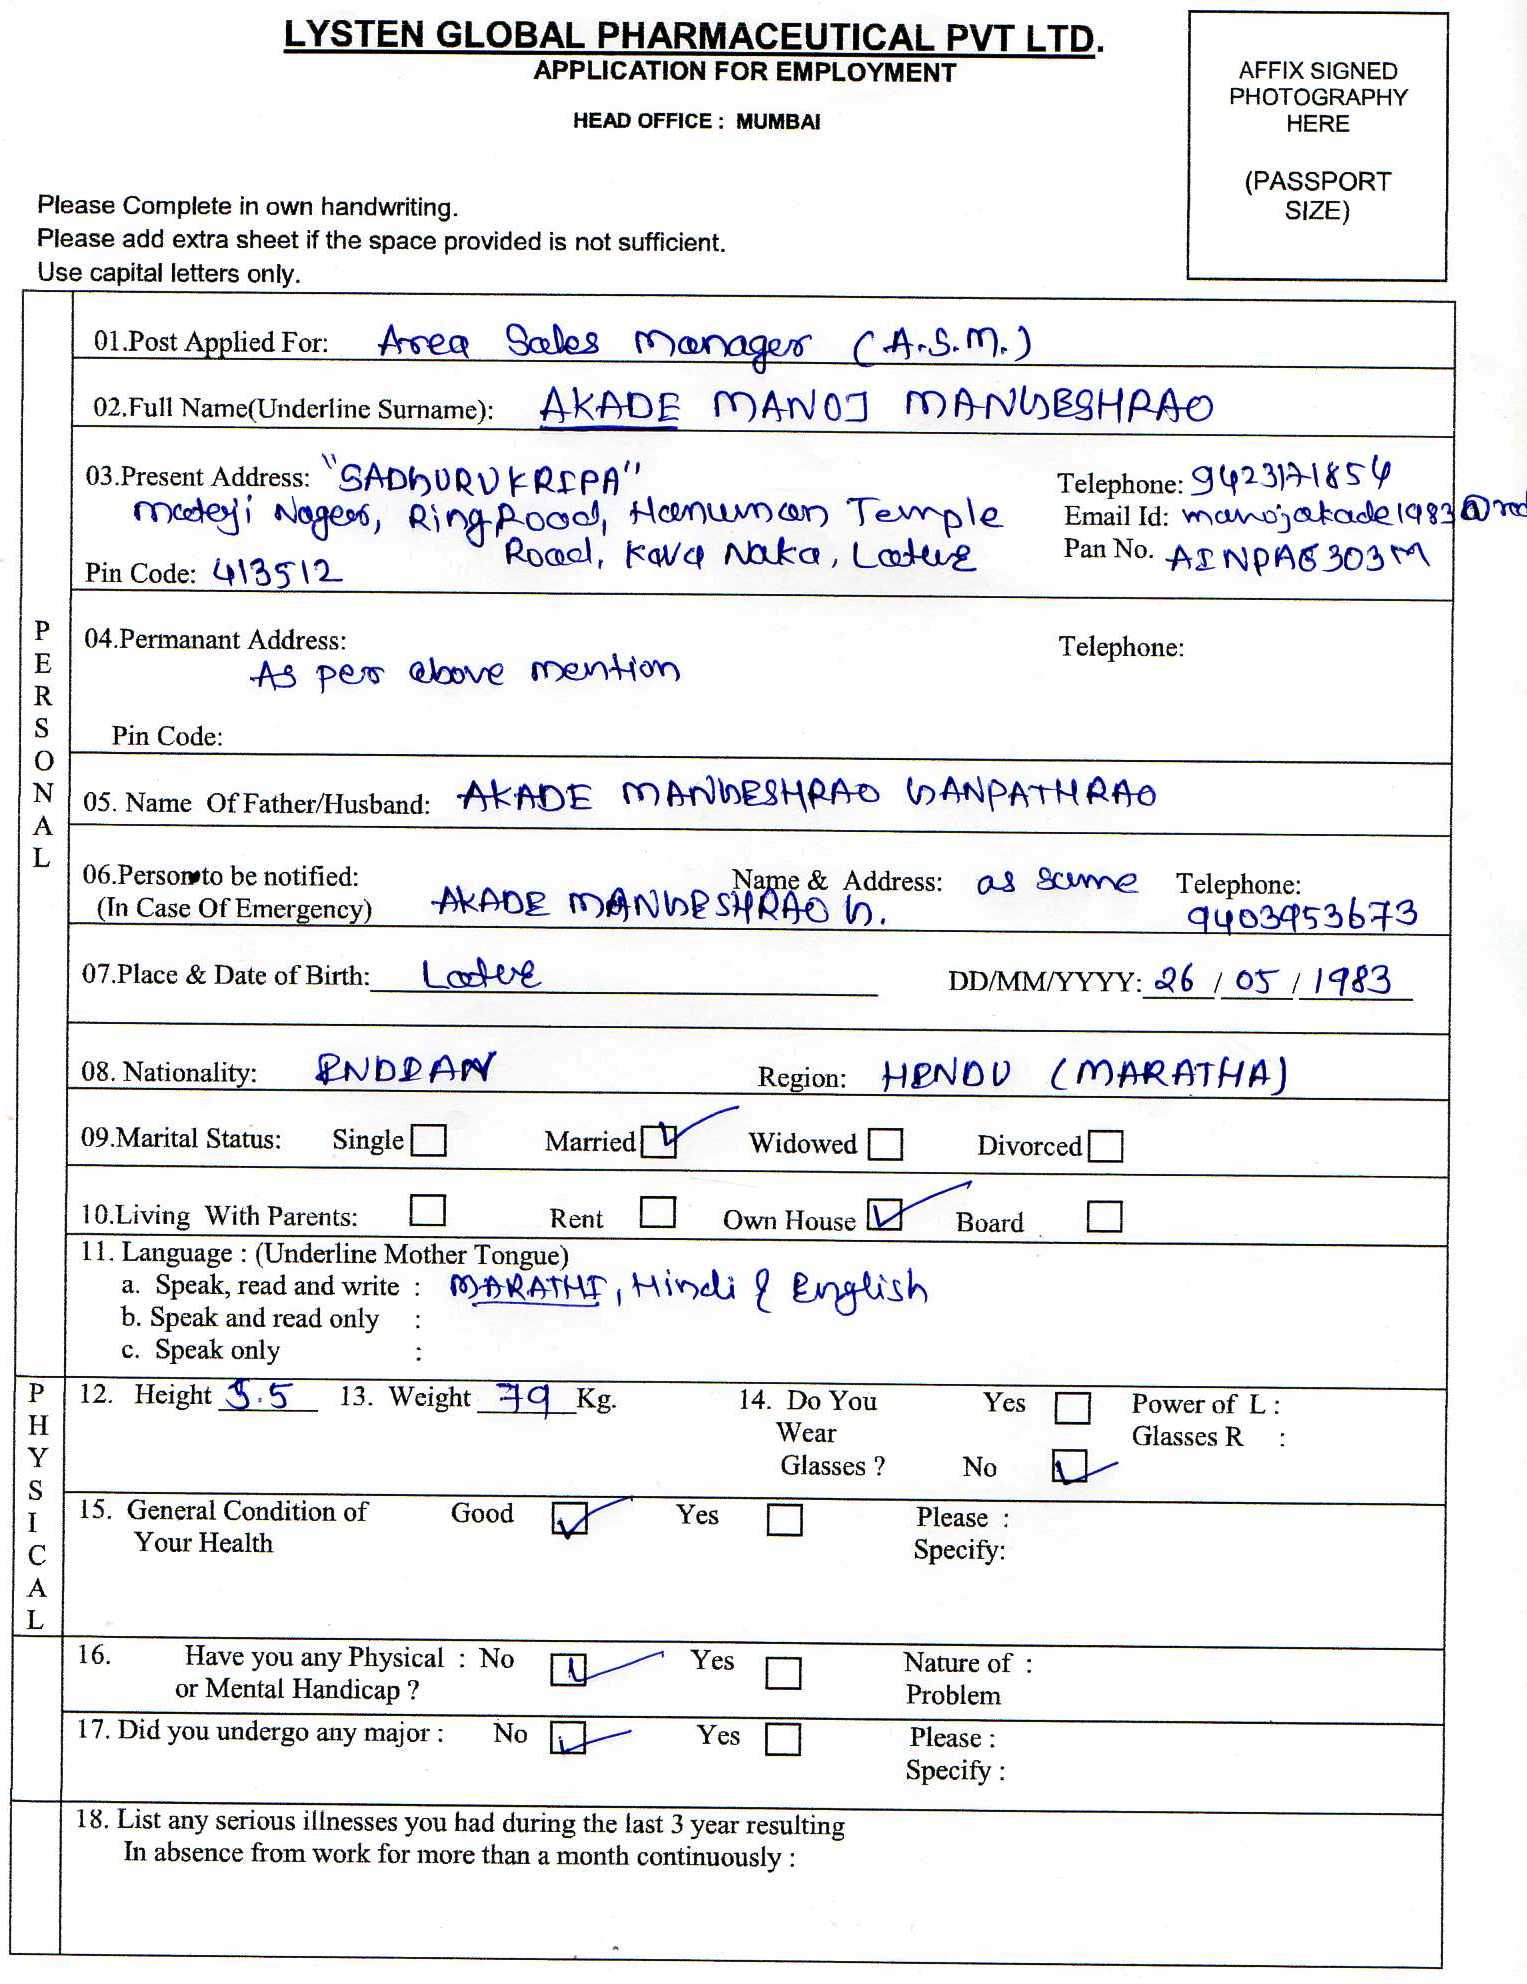 LYSTEN GLOBAL PHARMACEUTICAL PVT LTD.
APPLICATION FOR EMPLOYMENT
HEAD OFFICE : MUMBAI
AFFIX SIGNED
PHOTOGRAPHY
HERE
(PASSPORT
SIZE)
Please Complete in own handwriting.
Please add extra sheet if the space provided is not sufficient.
Use capital letters only.
PERSONAL
01.Post Applied For: Area Sales Manager (A.S.M.)
02.Full Name(Underline Surname): AKADE MANOJ MANGESHRAO
03.Present Address: "SADGURUKRIPA" Telephone: 9423171854
Mateji Nager, Ring Road, Hanuman Temple Email Id: manojakade1983@red
Road, Kava Naka, Latur Pan No. AINPA6303M
Pin Code: 413512
04.Permanant Address: Telephone:
As per above mention
Pin Code:
05. Name Of Father/Husband: AKADE MANGESHRAO GANPATHRAO
06.Person to be notified: Name & Address: as same Telephone:
(In Case Of Emergency) AKADE MANGESHRAO G. 9403953673
07.Place & Date of Birth: Latur DD/MM/YYYY: 26 / 05 / 1983
08. Nationality: INDIAN Region: HINDU (MARATHA)
09.Marital Status: Single Married Widowed Divorced
10.Living With Parents: Rent Own House Board
11. Language : (Underline Mother Tongue)
a. Speak, read and write : MARATHI, Hindi & English
b. Speak and read only :
c. Speak only :
PHYSICAL
12. Height 5.5 13. Weight 79 Kg. 14. Do You Yes Power of L :
Wear Glasses R :
Glasses ? No
15. General Condition of Good Yes Please :
Your Health Specify:
16. Have you any Physical : No Yes Nature of :
or Mental Handicap ? Problem
17. Did you undergo any major : No Yes Please :
Specify :
18. List any serious illnesses you had during the last 3 year resulting
In absence from work for more than a month continuously :